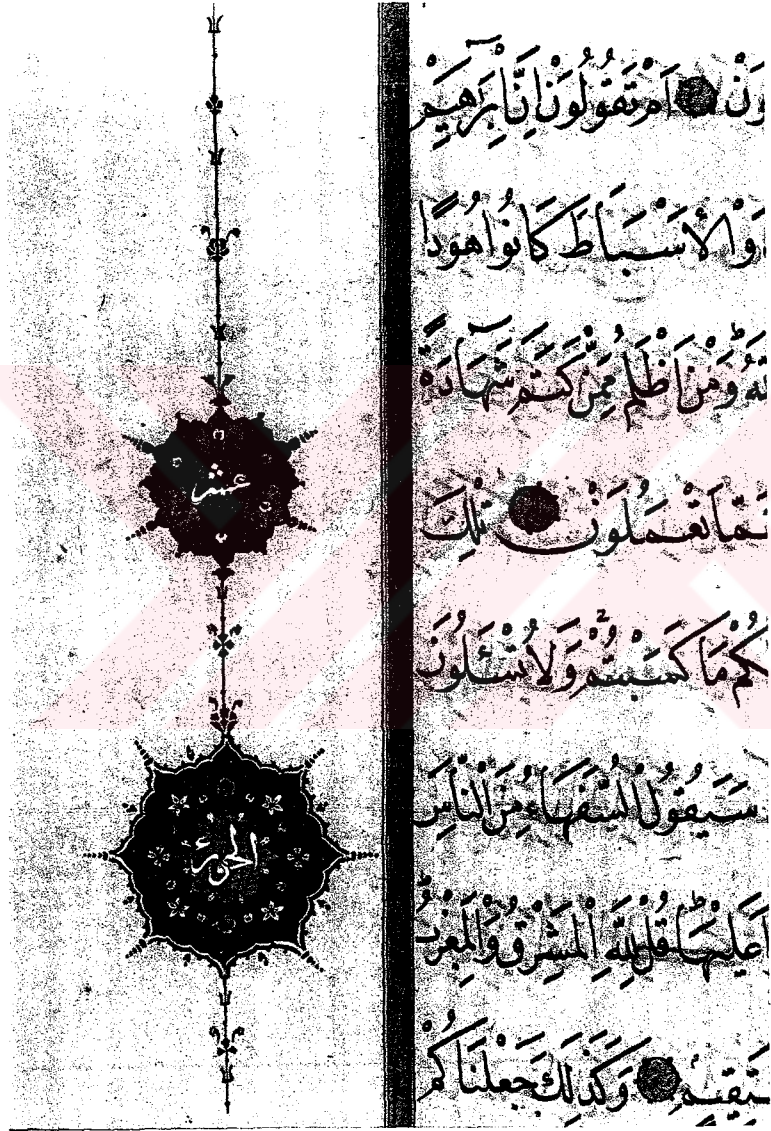 ونَ أَمْ تَقُولُونَ إِنَّ إِبْرٰهِيمَ
وَالْأَسْبَاطَ كَانُوا هُودًا
اللَّهُ وَمَنْ أَظْلَمُ مِمَّنْ كَتَمَ شَهَادَةً
عَمَّا تَعْمَلُونَ تِلْكَ
كُمْ مَا كَسَبْتُمْ وَلَا تُسْئَلُونَ
سَيَقُولُ السُّفَهَاءُ مِنَ النَّاسِ
عَلَيْهَا قُلْ لِلَّهِ الْمَشْرِقُ وَالْمَغْرِبُ
تَقِيمٍ وَكَذٰلِكَ جَعَلْنَاكُمْ
عشر
الجزء